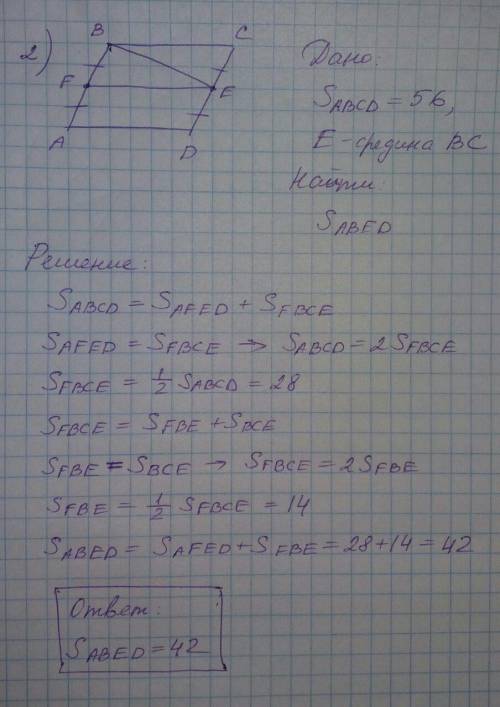 2)
B C
F E
A D
Дано:
S ABCD = 56,
E - средина BC
Найти:
S ABED
Решение:
S ABCD = S AFED + S FBCE
S AFED = S FBCE → S ABCD = 2 S FBCE
S FBCE = 1/2 S ABCD = 28
S FBCE = S FBE + S BCE
S FBE = S BCE → S FBCE = 2 S FBE
S FBE = 1/2 S FBCE = 14
S ABED = S AFED + S FBE = 28 + 14 = 42
Ответ:
S ABED = 42